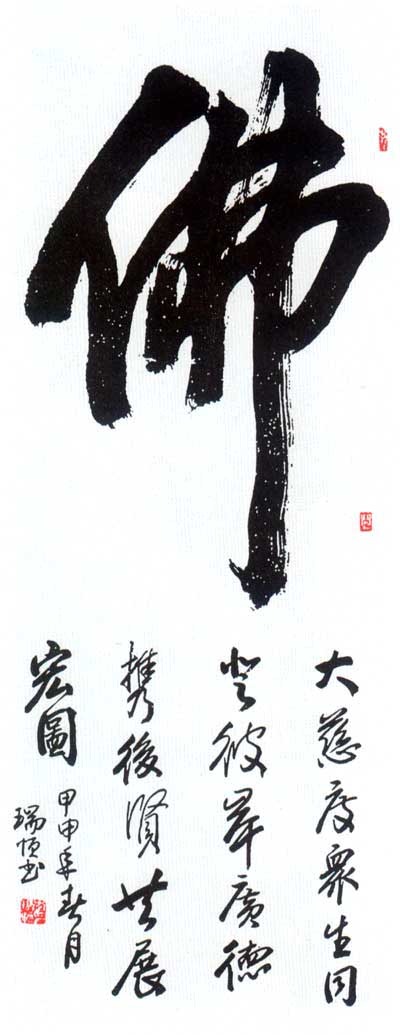 佛
大慈度衆生同
登彼岸廣德
攜後賢共展
宏圖
甲申年春月
瑞恒书